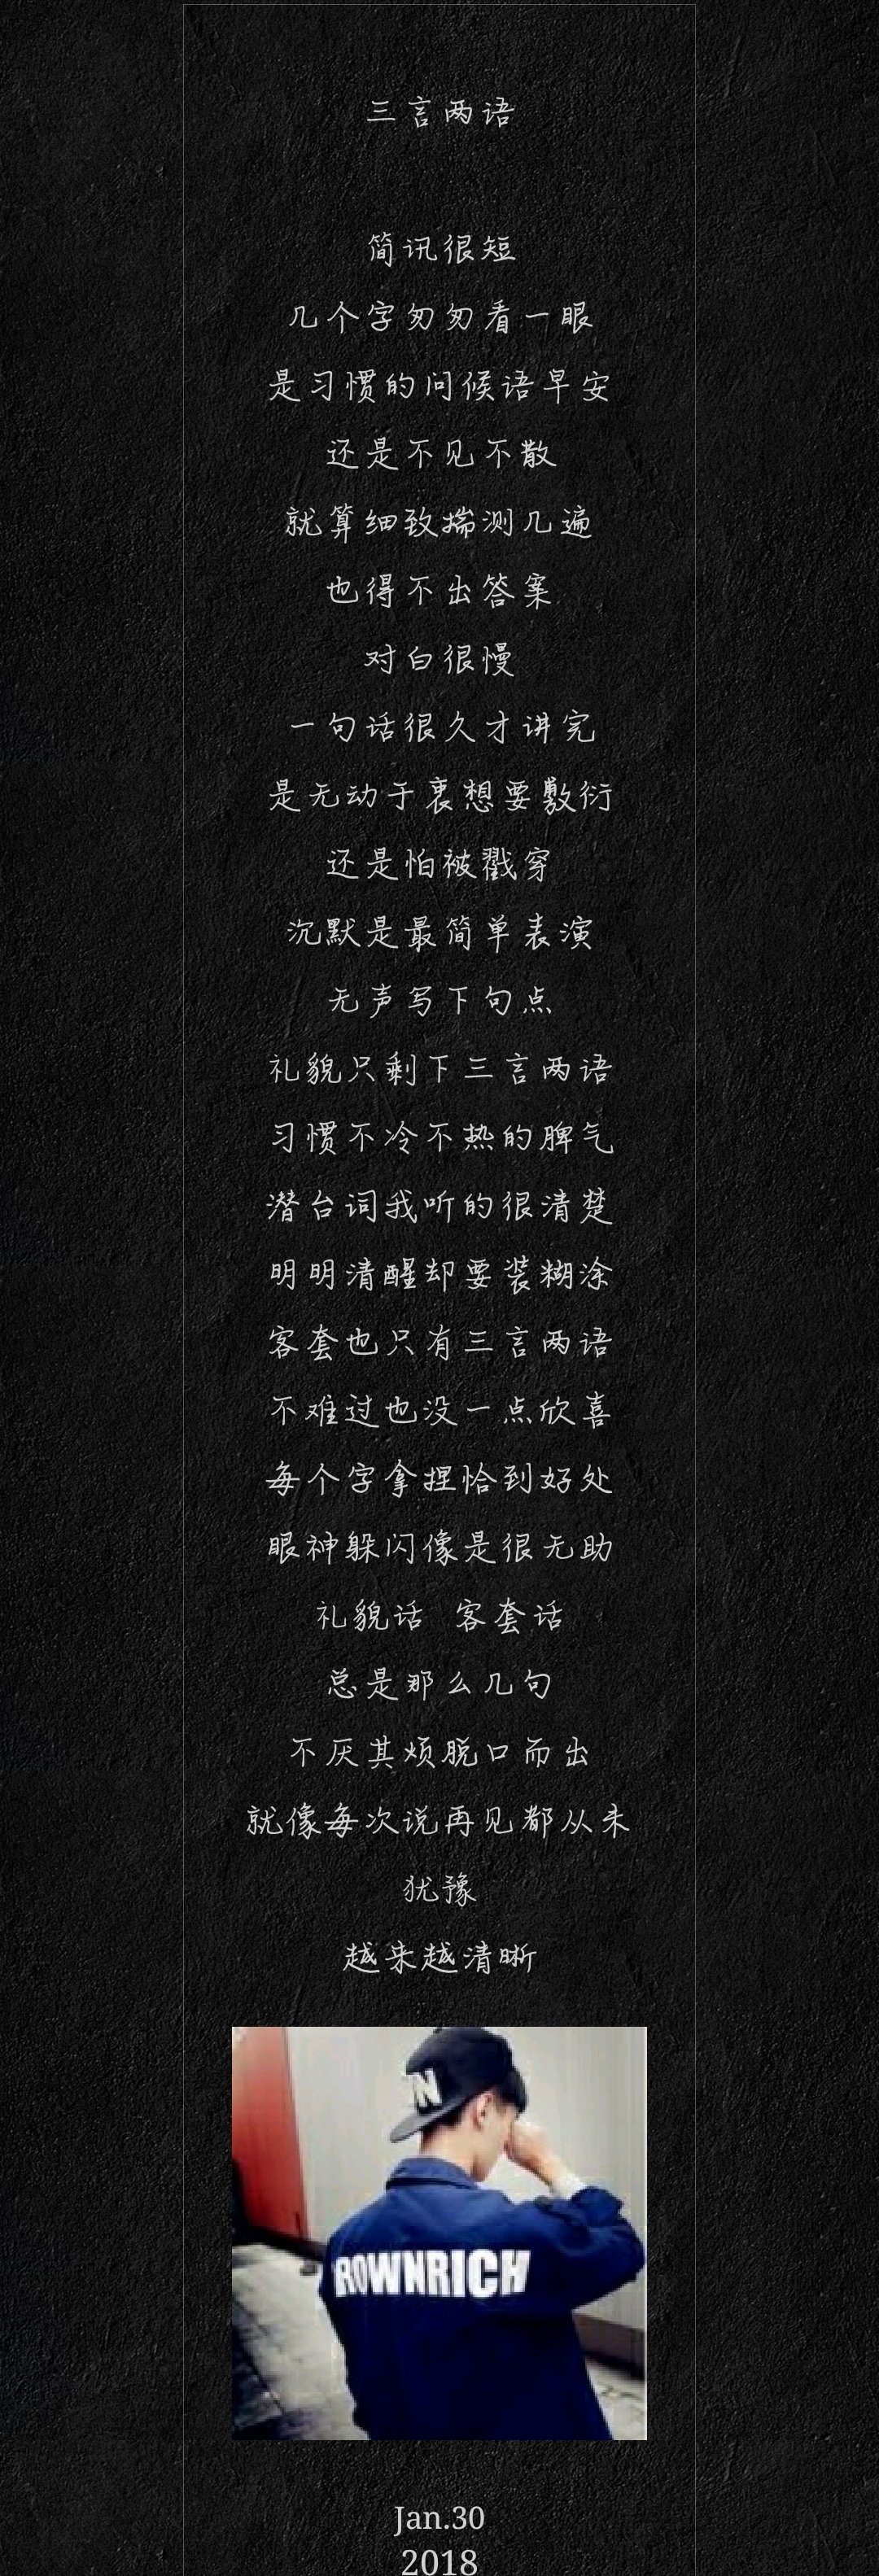 三言两语
简讯很短
几个字匆匆看一眼
是习惯的问候语早安
还是不见不散
就算细致揣测几遍
也得不出答案
对白很慢
一句话很久才讲完
是无动于衷想要敷衍
还是怕被戳穿
沉默是最简单表演
无声写下句点
礼貌只剩下三言两语
习惯不冷不热的脾气
潜台词我听的很清楚
明明清醒却要装糊涂
客套也只有三言两语
不难过也没一点欣喜
每个字拿捏恰到好处
眼神躲闪像是很无助
礼貌话 客套话
总是那么几句
不厌其烦脱口而出
就像每次说再见都从未
犹豫
越来越清晰
N
ROWNRICH
Jan.30
2018